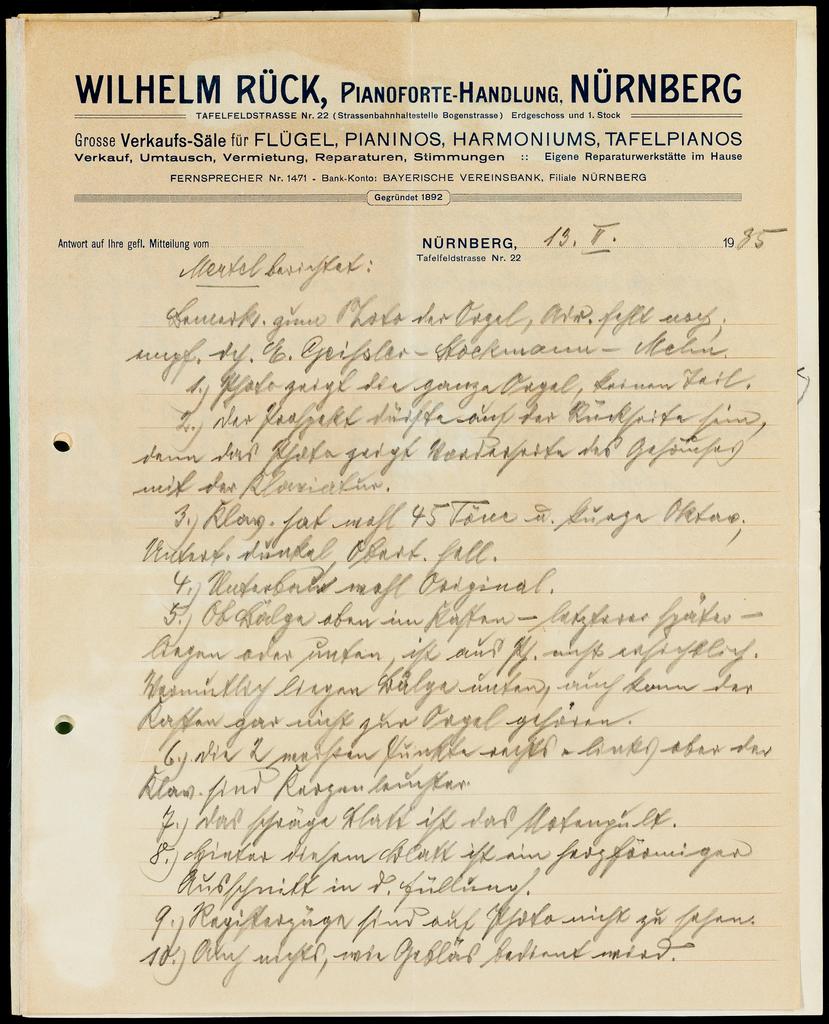 WILHELM RÜCK, PIANOFORTE-HANDLUNG, NÜRNBERG
TAFELFELDSTRASSE Nr. 22 (Strassenbahnhaltestelle Bogenstrasse) Erdgeschoss und 1. Stock
Grosse Verkaufs-Säle für FLÜGEL, PIANINOS, HARMONIUMS, TAFELPIANOS
Verkauf, Umtausch, Vermietung, Reparaturen, Stimmungen :: Eigene Reparaturwerkstätte im Hause
FERNSPRECHER Nr. 1471 - Bank-Konto: BAYERISCHE VEREINSBANK, Filiale NÜRNBERG
Gegründet 1892
Antwort auf Ihre gefl. Mitteilung vom
NÜRNBERG, 13. II. 1935
Tafelfeldstrasse Nr. 22
Mertel berichtet:
Bemerk. zum Photo der Orgel, Adr. fehlt noch,
empf. dch. E. Geißler-Stockmann-Meln.
1.) Photo zeigt die ganze Orgel, keinen Teil.
2.) Der Prospekt dürfte auf der Rückseite sein,
denn das Photo zeigt Vorderseite des Gehäuses
mit der Klaviatur.
3.) Klav. hat wohl 45 Töne u. kurze Oktav,
Untert. dunkel, Obert. hell.
4.) Unterbau wohl Original.
5.) Ob Bälge oben im Kasten - letzterer später -
liegen oder unten, ist aus Ph. nicht ersichtlich.
Vermutlich liegen Bälge unten, auch kann der
Kasten gar nicht zur Orgel gehören.
6.) Die 2 weißen Punkte rechts u. links ober der
Klav. sind Kerzenleuchter.
7.) Das schräge Blatt ist das Notenpult.
8.) Hinter diesem Blatt ist ein herzförmiger
Ausschnitt in d. Füllung.
9.) Registerzüge sind auf Photo nicht zu sehen.
10.) Auch nichts, wie Gebläs bedient wird.